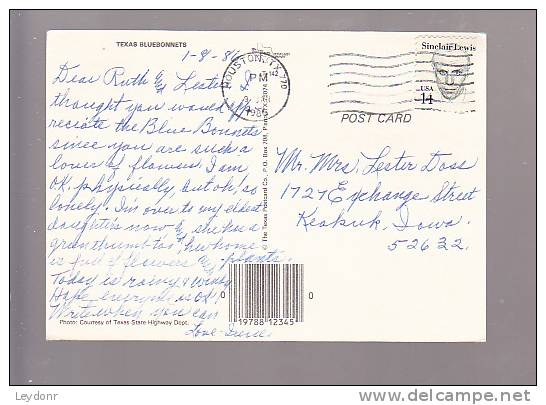 TEXAS BLUEBONNETS
1-8-86
Dear Ruth & Lester
thought you would app-
reciate the Blue Bonnets
since you are such a
lover of flowers. I am
OK. physically, but oh, so
lonely. I'm over to my eldest
daughter's now & she has a
green thumb - too, her home
is full of flowers & plants.
Today is rainy & windy
Hope everyone is OK!
Write when you can
Love - Irene.
Photo: Courtesy of Texas State Highway Dept.
© The Texas Postcard Co., P.O. Box 788, Plano, TX 75074
HOUSTON, TX 770
PM
Sinclair Lewis
USA
14
POST CARD
Mr. Mrs. Lester Doss
1727 Exchange Street
Keokuk, Iowa.
52632.
0
19788 12345
0
Leydonr
delcampe.net